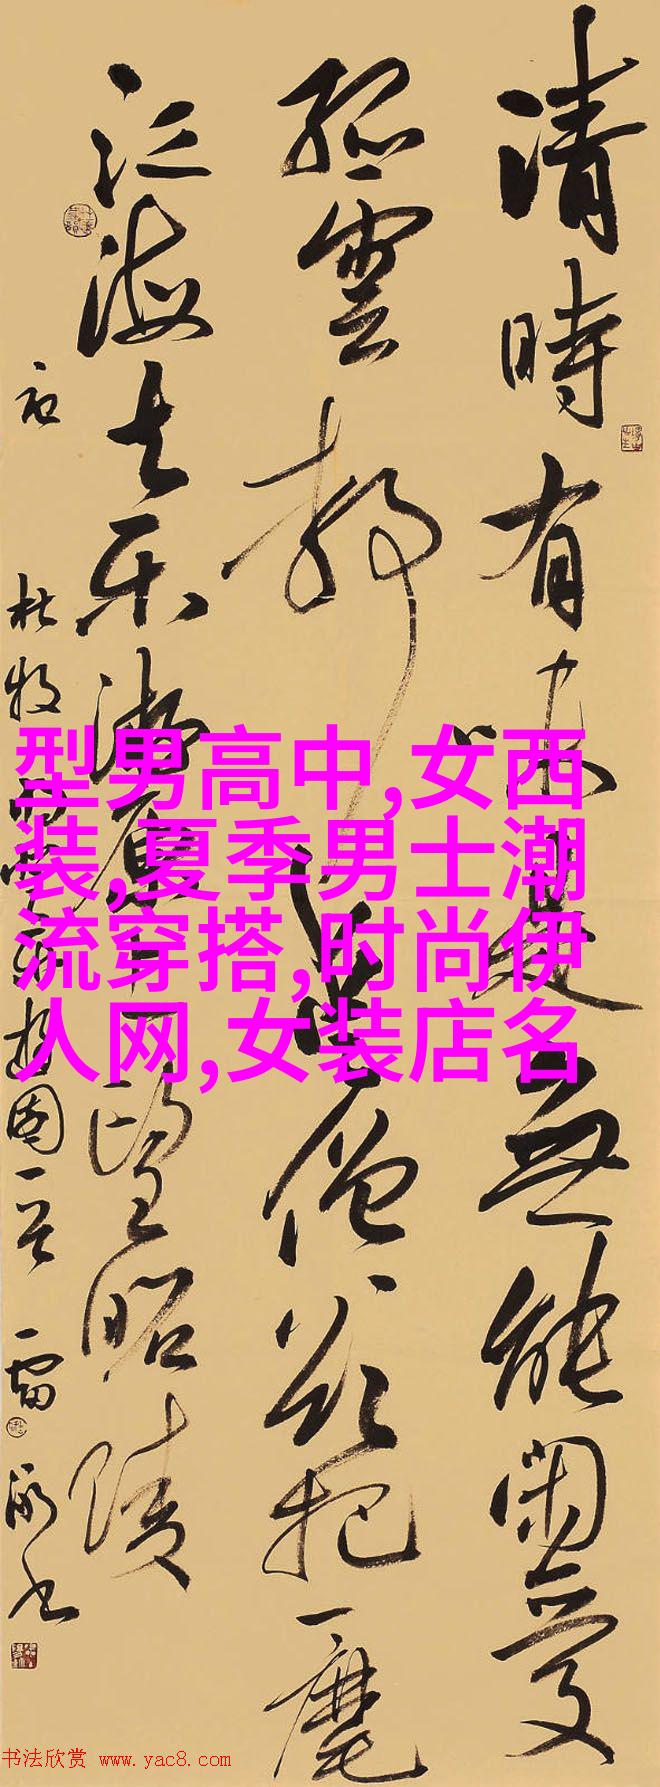 清時有味是無能閑愛
孤雲靜愛僧欲把一麾
江海去乐游原上望昭陵
杜牧
型男高中,女西
装,夏季男士潮
流穿搭,时尚伊
人网,女装店名
书法欣赏 www.yac8.com